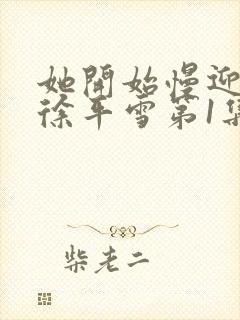 她開始慢迎
徐平雪第1集
柴老二